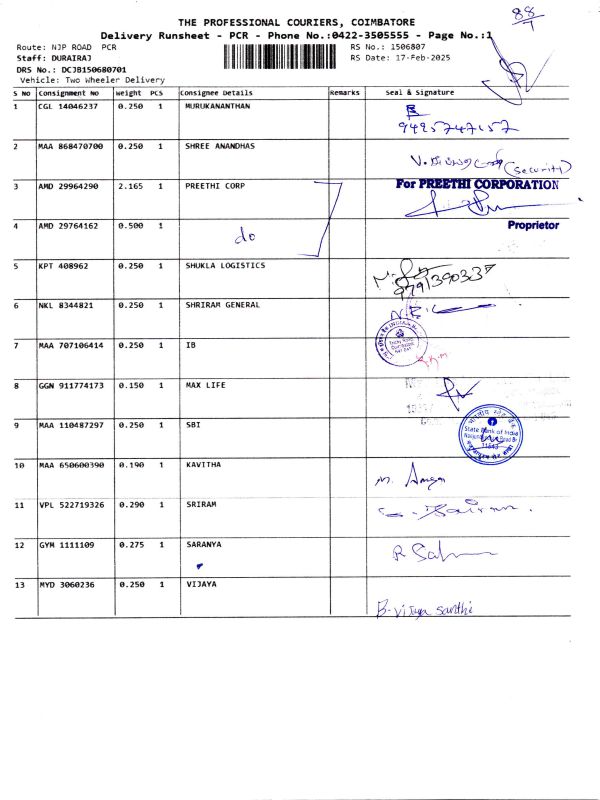 88/1
THE PROFESSIONAL COURIERS, COIMBATORE
Delivery Runsheet - PCR - Phone No.:0422-3505555 - Page No.:1
Route: NJP ROAD PCR
RS No.: 1506807
Staff: DURAIRAJ
RS Date: 17-Feb-2025
DRS No.: DCJB150680701
Vehicle: Two Wheeler Delivery
S No Consignment No Weight PCS Consignee Details Remarks Seal & Signature
1 CGL 14046237 0.250 1 MURUKANANTHAN
2 MAA 868470700 0.250 1 SHREE ANANDHAS
(Security)
3 AMD 29964290 2.165 1 PREETHI CORP
For PREETHI CORPORATION
4 AMD 29764162 0.500 1 do
Proprietor
5 KPT 408962 0.250 1 SHUKLA LOGISTICS
9791390337
6 NKL 8344821 0.250 1 SHRIRAM GENERAL
7 MAA 707106414 0.250 1 IB
8 GGN 911774173 0.150 1 MAX LIFE
9 MAA 110487297 0.250 1 SBI
State Bank of India
10 MAA 650600390 0.190 1 KAVITHA
11 VPL 522719326 0.290 1 SRIRAM
12 GYM 1111109 0.275 1 SARANYA
13 MYD 3060236 0.250 1 VIJAYA
B-vijaya santhi